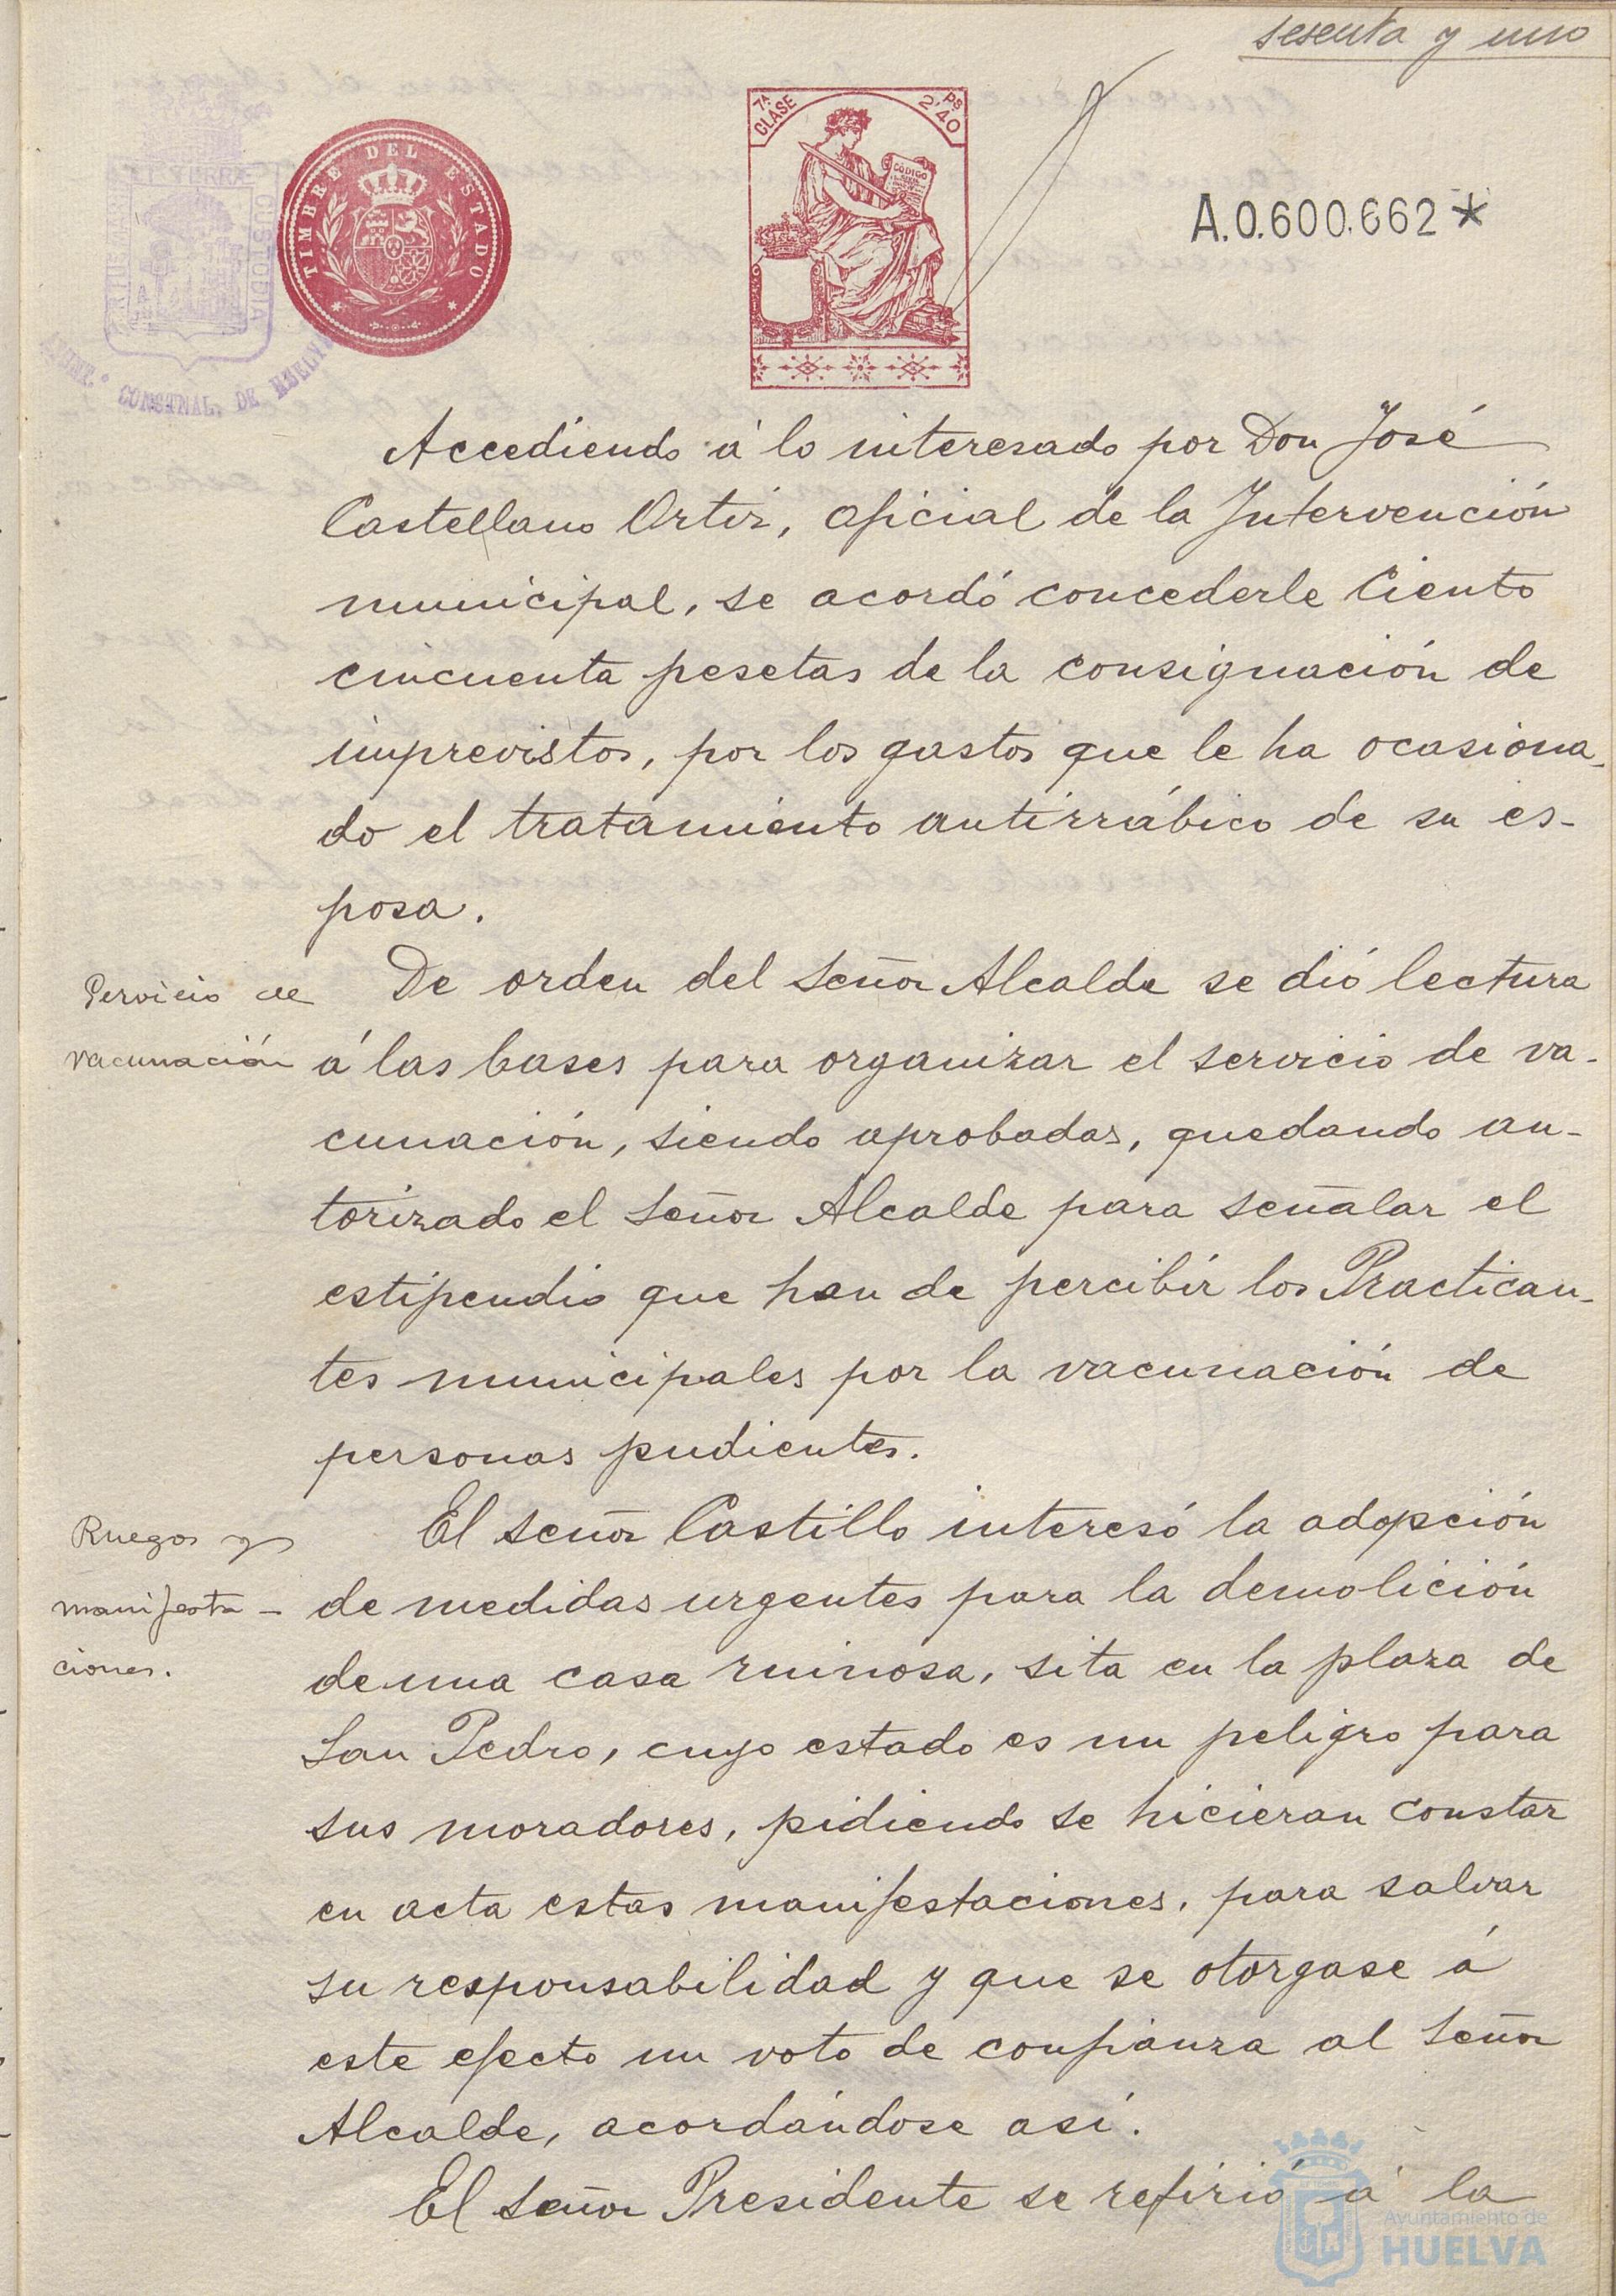 sesenta y uno
TIMBRE DEL ESTADO
7ª CLASE
Ps 2'40
CÓDIGO
A.0.600.662*
CUSTODIA
AYUNT.º CONSTNAL. DE HUELVA
Accediendo á lo interesado por Don José
Castellano Ortiz, oficial de la Intervención
municipal, se acordó concederle Ciento
cincuenta pesetas de la consignación de
imprevistos, por los gastos que le ha ocasiona-
do el tratamiento antirrábico de su es-
posa.
Servicio de
vacunación
De orden del Señor Alcalde se dió lectura
á las bases para organizar el servicio de va-
cunación, siendo aprobadas, quedando au-
torizado el Señor Alcalde para señalar el
estipendio que han de percibir los Practican-
tes municipales por la vacunación de
personas pudientes.
Ruegos y
manifesta-
ciones.
El Señor Castillo interesó la adopción
de medidas urgentes para la demolición
de una casa ruinosa, sita en la plaza de
San Pedro, cuyo estado es un peligro para
sus moradores, pidiendo se hicieran constar
en acta estas manifestaciones, para salvar
su responsabilidad y que se otorgase á
este efecto un voto de confianza al Señor
Alcalde, acordándose así.
El Señor Presidente se refirió á la
Ayuntamiento de
HUELVA